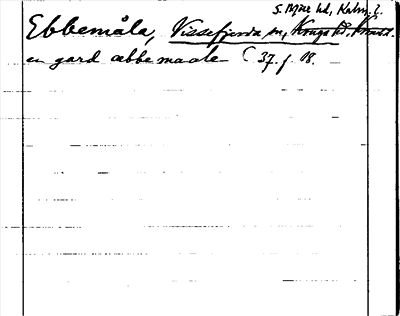 S. Möre hd, Kalm. l.
Ebbemåla, Vissefjerda sn, Konga hd.
en gard æbbemaale (37. f 18.